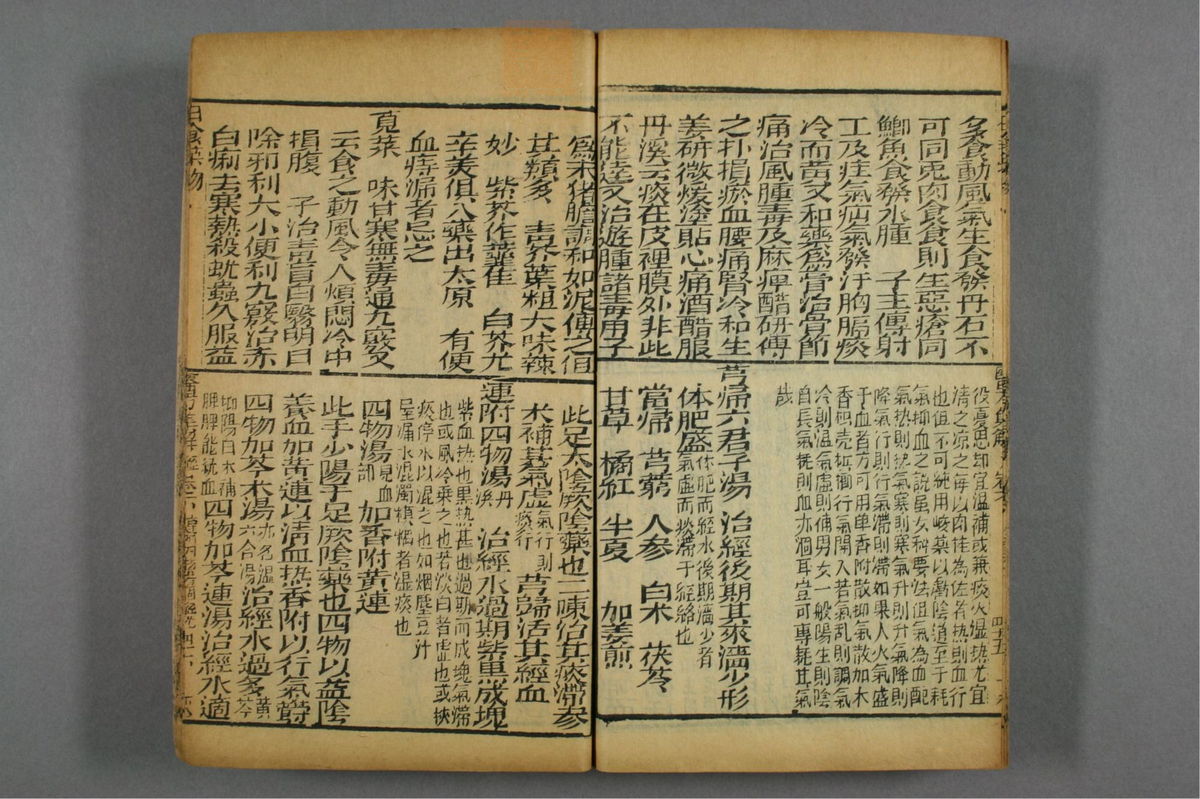 多食動風氣生食發丹石不
可同兎肉食食則生惡瘡同
鯽魚食發水腫 子主傳射
工及疰氣疝氣發汗胸膈痰
冷而黃又和藥爲膏治骨節
痛治風腫毒及麻痺醋研傅
之扑損瘀血腰痛腎冷和生
姜研微煖塗貼心痛酒醋服
丹溪云痰在皮裡膜外非此
不能達又治遊腫諸毒用子
爲末猪膽調和如泥傅之但
其類多 青芥葉粗大味辣
妙 紫芥作虀佳 白芥尤
辛美俱入藥出太原 有便
血痔漏者忌之
莧菜 味甘寒無毒通九竅又
云食之動風令人煩悶冷中
損腹 子治青盲白翳明目
除邪利大小便利九竅治赤
白痢去寒熱殺蚘蟲久服益
日食菜物
役憂思却宜溫補或兼痰火湿热尤宜
淸之凉之每以肉桂為佐者热則血行
也但不可純用峻藥以虧陰道至于耗
氣抑血之説虽女科要法但氣為血配
氣热則热氣寒則寒氣升則升氣降則
降氣行則行氣滯則滯如果人火氣盛
于血者方可用单香附散抑氣散加木
香枳壳梹榔行氣開入若氣乱則調氣
冷則温氣虛則補男女一般陽生則陰
自長氣耗則血亦涸耳豈可專耗其氣
哉
芎歸六君子湯 治經後期其來濇少形
体肥盛体肥而經水後期濇少者氣虛而痰滯于經絡也
當歸 芎藭 人參 白术 茯苓
甘草 橘紅 半夏  加姜煎
此足太陰厥陰藥也二陳治其痰滯參
术補其氣虛氣行則痰行芎歸活其經血
連附四物湯丹溪 治經水過期紫黒成塊
紫血热也黒热甚也過期而成塊氣滯
也或風冷乗之也若淡白者虛也或挾
痰停水以混之也如烟塵豆汁
屋漏水混濁模糊者湿痰也
四物湯見血部 加香附黃連
此手少陽手足厥陰藥也四物以益陰
養血加黃連以淸血热香附以行氣鬱
四物加芩术湯亦名温六合湯治經水過多黃芩
抑陽白术補脾脾能統血四物加芩連湯治經水適